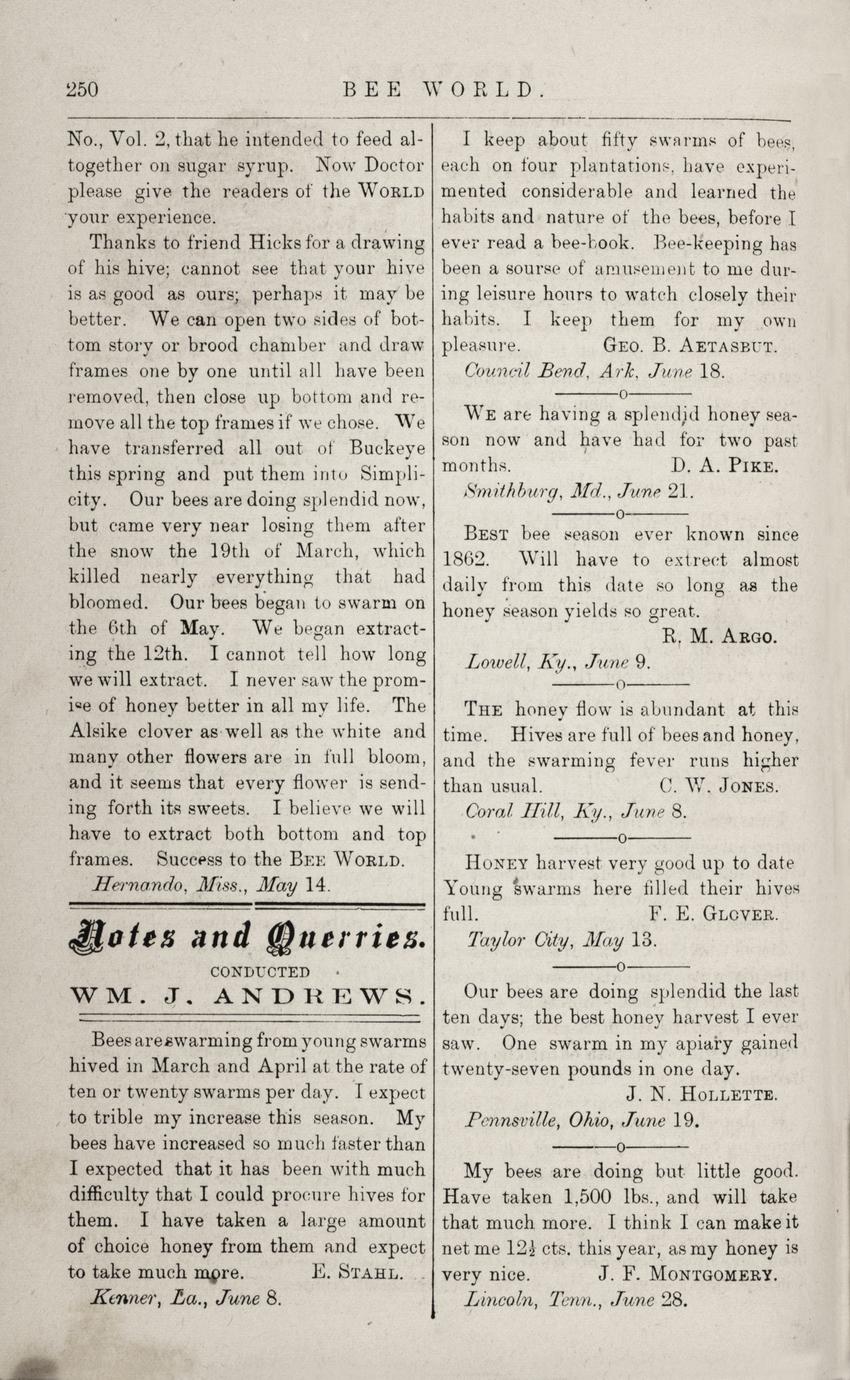 250
BEE WORLD.
No., Vol. 2, that he intended to feed al-
together on sugar syrup. Now Doctor
please give the readers of the WORLD
your experience.
Thanks to friend Hicks for a drawing
of his hive; cannot see that your hive
is as good as ours; perhaps it may be
better. We can open two sides of bot-
tom story or brood chamber and draw
frames one by one until all have been
removed, then close up bottom and re-
move all the top frames if we chose. We
have transferred all out of Buckeye
this spring and put them into Simpli-
city. Our bees are doing splendid now,
but came very near losing them after
the snow the 19th of March, which
killed nearly everything that had
bloomed. Our bees began to swarm on
the 6th of May. We began extract-
ing the 12th. I cannot tell how long
we will extract. I never saw the prom-
ise of honey better in all my life. The
Alsike clover as well as the white and
many other flowers are in full bloom,
and it seems that every flower is send-
ing forth its sweets. I believe we will
have to extract both bottom and top
frames. Success to the BEE WORLD.
Hernando, Miss., May 14.
Notes and Querries.
CONDUCTED
WM. J. ANDREWS.
Bees are swarming from young swarms
hived in March and April at the rate of
ten or twenty swarms per day. I expect
to trible my increase this season. My
bees have increased so much faster than
I expected that it has been with much
difficulty that I could procure hives for
them. I have taken a large amount
of choice honey from them and expect
to take much more. E. STAHL.
Kenner, La., June 8.
I keep about fifty swarms of bees,
each on four plantations, have experi-
mented considerable and learned the
habits and nature of the bees, before I
ever read a bee-book. Bee-keeping has
been a sourse of amusement to me dur-
ing leisure hours to watch closely their
habits. I keep them for my own
pleasure. GEO. B. AETASBUT.
Council Bend, Ark, June 18.
—o—
WE are having a splendid honey sea-
son now and have had for two past
months. D. A. PIKE.
Smithburg, Md., June 21.
—o—
BEST bee season ever known since
1862. Will have to extrect almost
daily from this date so long as the
honey season yields so great.
R. M. ARGO.
Lowell, Ky., June 9.
—o—
THE honey flow is abundant at this
time. Hives are full of bees and honey,
and the swarming fever runs higher
than usual. C. W. JONES.
Coral Hill, Ky., June 8.
—o—
HONEY harvest very good up to date
Young swarms here filled their hives
full. F. E. GLOVER.
Taylor City, May 13.
—o—
Our bees are doing splendid the last
ten days; the best honey harvest I ever
saw. One swarm in my apiary gained
twenty-seven pounds in one day.
J. N. HOLLETTE.
Pennsville, Ohio, June 19.
—o—
My bees are doing but little good.
Have taken 1,500 lbs., and will take
that much more. I think I can make it
net me 12½ cts. this year, as my honey is
very nice. J. F. MONTGOMERY.
Lincoln, Tenn., June 28.